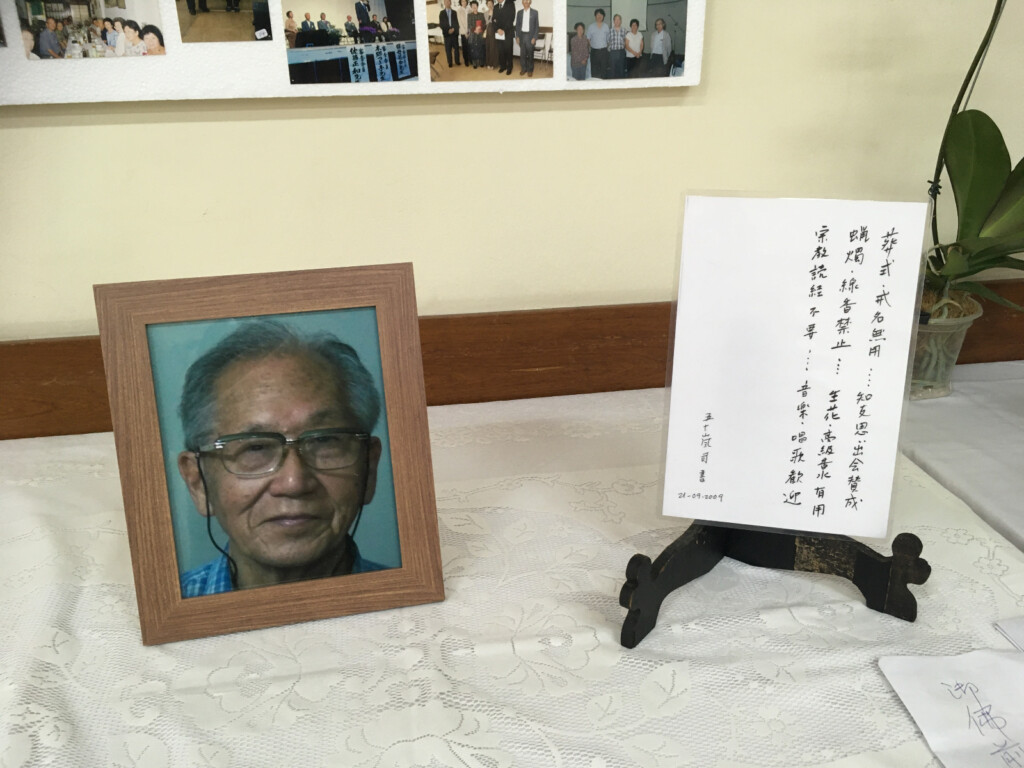 葬式・戒名無用……知友思い出会賛成
蝋燭・線香禁止……生花・高級香水有用
宗教読経不要……音楽・唱歌歓迎
五十嵐司 書
21-09-2009
御佛前